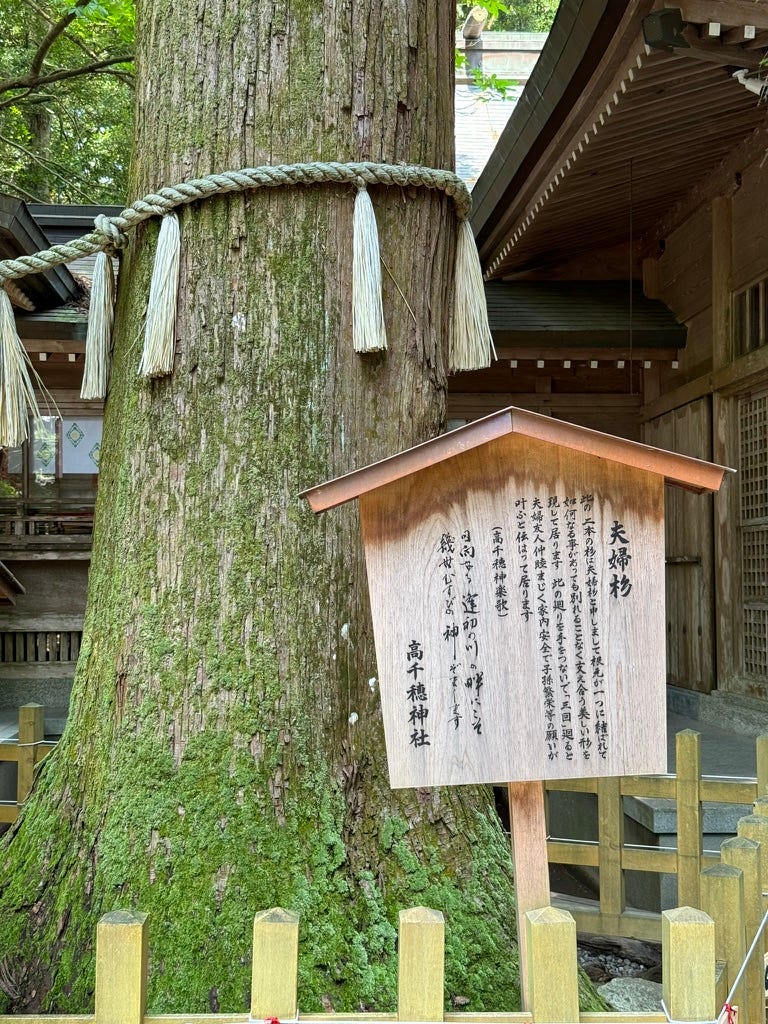 夫婦杉
此の二本の杉は夫婦杉と申しまして根元が一つに結ばれて
如何なる事があっても別れることなく支え合う美しい形を
現して居ります 此の廻りを手をつないで「三回」廻ると
夫婦友人仲睦まじく家内安全で子孫繁栄等の願いが
叶ふと伝はって居ります
(高千穂神楽歌)
日向なる 逢初の川の 畔にこそ
幾世むすびの 神ぞまします
高千穂神社